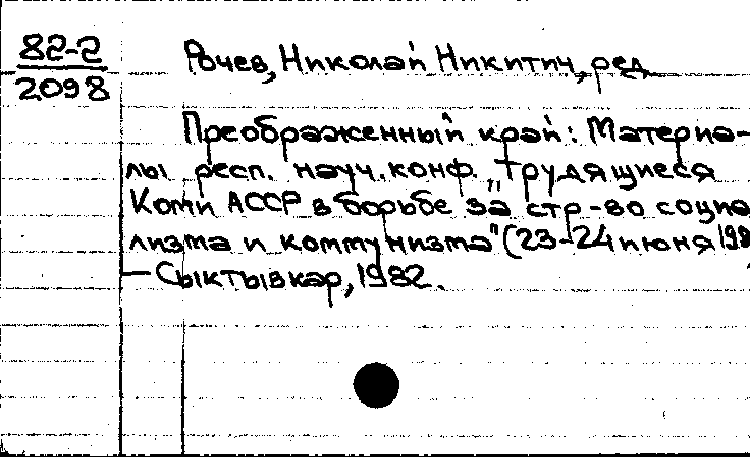 82-2
2098
Рочев, Николай Никитич, ред
Преображенный край: Материа-
лы респ. науч. конф. „Трудящиеся
Коми АССР в борьбе за стр-во социа
лизма и коммунизма" (23-24 июня 198
— Сыктывкар, 1982.